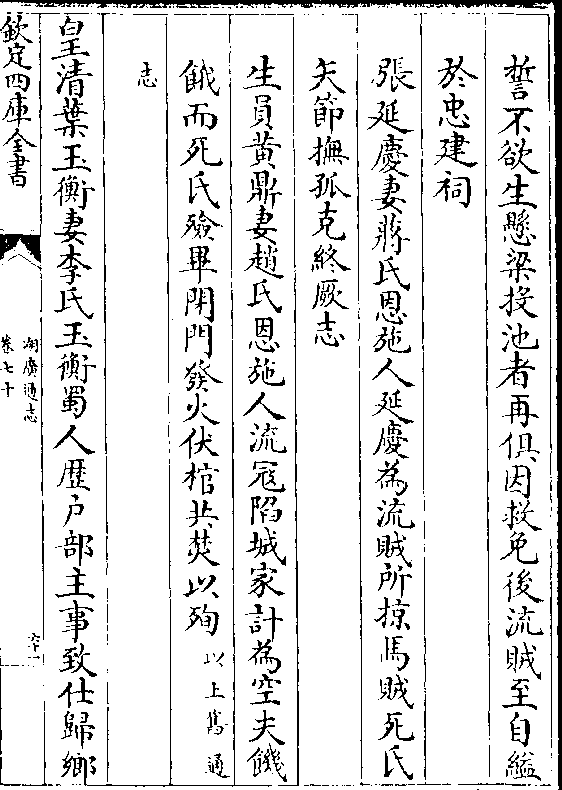 誓不欲生懸梁投池者再俱因救免後流賊至自縊
於忠建祠
張延慶妻蔣氏恩施人延慶為流賊所掠馬賊死氏
矢節撫孤克終厥志
生員黄鼎妻趙氏恩施人流寇陷城家計為空夫饑
餓而死氏殮畢閉門發火伏棺共焚以殉以上舊通
志
皇清葉玉衡妻李氏玉衡蜀人歴户部主事致仕歸鄉
欽定四庫全書
湖廣通志
卷七十
六十一